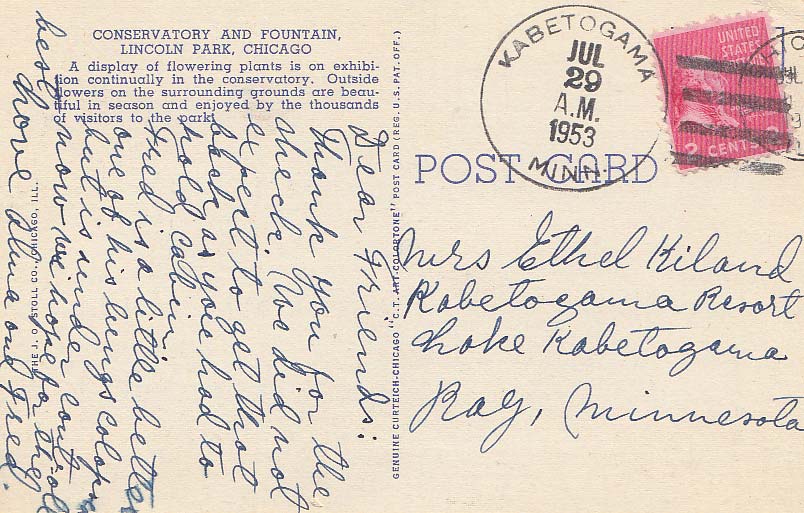 CONSERVATORY AND FOUNTAIN,
LINCOLN PARK, CHICAGO
A display of flowering plants is on exhibi-
tion continually in the conservatory. Outside
flowers on the surrounding grounds are beau-
tiful in season and enjoyed by the thousands
of visitors to the park.
Dear Friends:
Thank you for the
check. We did not
expect to get that
back as you had to
hold cabin.
Fred is a little better
one of his lungs colapsed
but is under control
now we hope for the
best.
Love Alma and Fred.
THE J. O. STOLL CO., CHICAGO, ILL.
GENUINE CURTEICH-CHICAGO "C.T. ART-COLORTONE" POST CARD (REG. U.S. PAT. OFF.)
POST CARD
KABETOGAMA
JUL
29
A.M.
1953
MINN.
UNITED
STATES
2 CENTS
Mrs Ethel Kiland
Kabetogama Resort
Lake Kabetogama
Ray, Minnesota